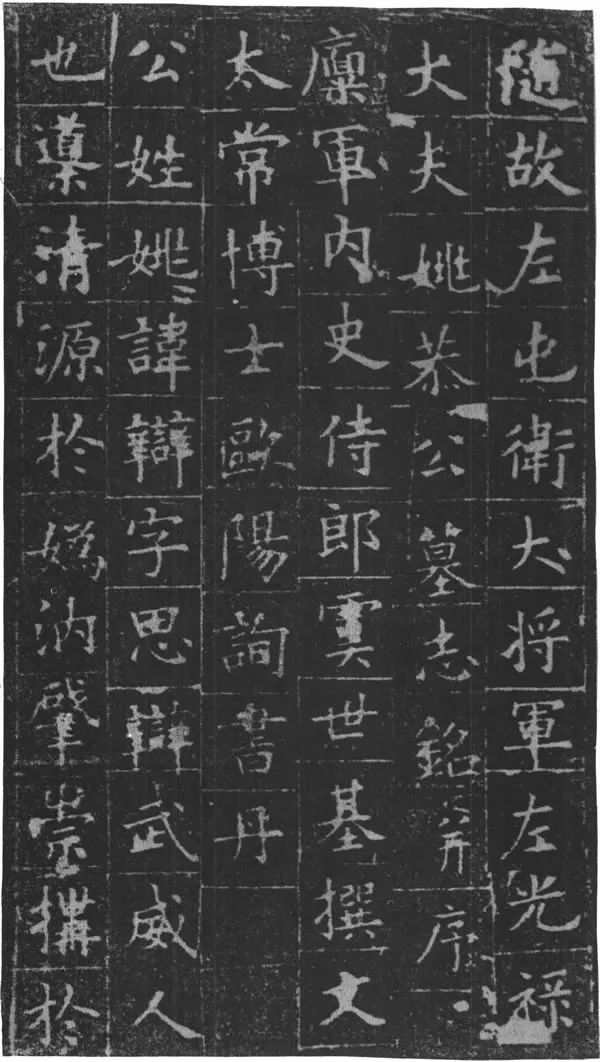 隨故左屯衛大将軍左光禄
大夫姚恭公墓志銘并序
廩軍内史侍郎虞世基撰文
太常博士歐陽詢書丹
公姓姚諱辯字思辯武威人
也導清源於媯汭肇崇構於